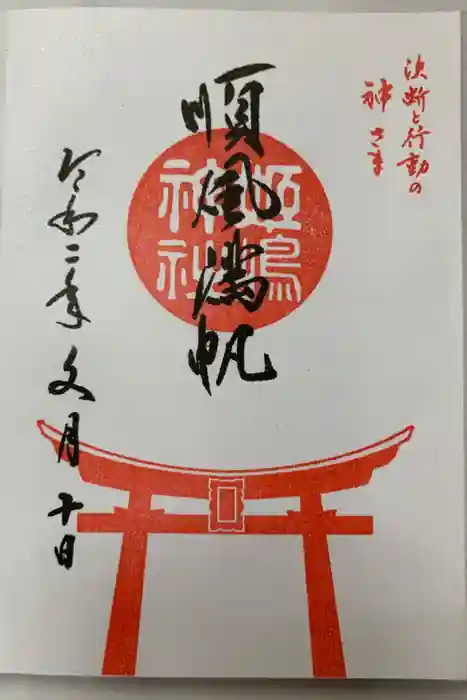 決断と行動の
神さま
順風満帆
姫嶋
神社
令和二年文月十日